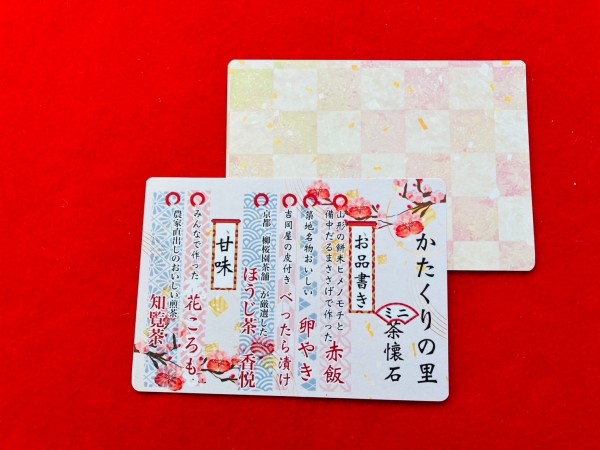 かたくりの里
ミニ茶懐石
お品書き
山形の餅米ヒメノモチと
備中だるまささげで作った 赤飯
築地名物おいしい 卵やき
吉岡屋の皮付き べったら漬け
京都 柳桜園茶舗 が厳選した
ほうじ茶 香悦
甘味
みんなで作った 花ころも
農家直出しのおいしい煎茶
知覧茶